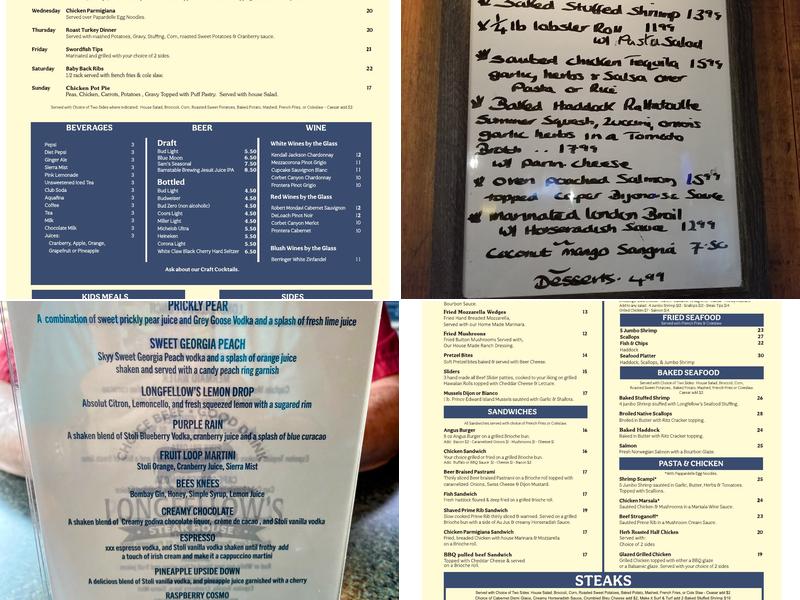 Wednesday Chicken Parmigiana 20
Served over Papardelle Egg Noodles.
Thursday Roast Turkey Dinner 20
Served with mashed Potatoes, Gravy, Stuffing, Corn, roasted Sweet Potatoes & Cranberry sauce.
Friday Swordfish Tips 21
Marinated and grilled with your choice of 2 sides.
Saturday Baby Back Ribs 22
1/2 rack served with french fries & cole slaw.
Sunday Chicken Pot Pie 17
Peas, Chicken, Carrots, Potatoes , Gravy Topped with Puff Pastry. Served with house Salad.
Served with Choice of Two Sides where indicated: House Salad, Broccoli, Corn, Roasted Sweet Potatoes, Baked Potato, Mashed, French Fries, or Coleslaw - Caesar add $2
BEVERAGES
Pepsi 3
Diet Pepsi 3
Ginger Ale 3
Sierra Mist 3
Pink Lemonade 3
Unsweetened Iced Tea 3
Club Soda 3
Aquafina 3
Coffee 3
Tea 3
Milk 3
Chocolate Milk 3
Juices: 3
Cranberry, Apple, Orange,
Grapefruit or Pineapple
BEER
Draft
Bud Light 5.50
Blue Moon 6.50
Sam's Seasonal 7.50
Barnstable Brewing Jesuit Juice IPA 8.50
Bottled
Bud Light 4.50
Budweiser 4.50
Bud Zero (non alcoholic) 4.50
Coors Light 4.50
Miller Light 4.50
Michelob Ultra 5.50
Heineken 5.50
Corona Light 5.50
White Claw Black Cherry Hard Seltzer 6.50
Ask about our Craft Cocktails.
WINE
White Wines by the Glass
Kendall Jackson Chardonnay 12
Mezzacorona Pinot Grigio 11
Cupcake Sauvignon Blanc 11
Corbet Canyon Chardonnay 10
Frontera Pinot Grigio 10
Red Wines by the Glass
Robert Mondavi Cabernet Sauvignon 12
DeLoach Pinot Noir 12
Corbet Canyon Merlot 10
Frontera Cabernet 10
Blush Wines by the Glass
Berringer White Zinfandel 11
KIDS MEALS
SIDES
Baked Stuffed Shrimp 1399
1/4 lb lobster Roll 1199
w/ Pasta Salad
sauteed chicken Tequila 1599
garlic, herbs & Salsa over
Pasta or Rice
Baked Haddock Rattatouille
Summer Squash, Zuccini, onions
garlic herbs in a Tomato
Broth .. 1799
w/ Parm. cheese
oven poached Salmon 1599
topped Caper Bearnaise Sauce
marinated London Broil
w/ Horseradish Sauce 1299
Coconut mango Sangria 7.50
Desserts. 4.99
PRICKLY PEAR
A combination of sweet prickly pear juice and Grey Goose Vodka and a splash of fresh lime juice
SWEET GEORGIA PEACH
Skyy Sweet Georgia Peach vodka and a splash of orange juice
shaken and served with a candy peach ring garnish
LONGFELLOW'S LEMON DROP
Absolut Citron, Lemoncello, and fresh squeezed lemon with a sugared rim
PURPLE RAIN
A shaken blend of Stoli Blueberry Vodka, cranberry juice and a splash of blue curacao
FRUIT LOOP MARTINI
Stoli Orange, Cranberry Juice, Sierra Mist
BEES KNEES
Bombay Gin, Honey, Simple Syrup, Lemon Juice
CREAMY CHOCOLATE
A shaken blend of Creamy godiva chocolate liquor, crème de cacao , and Stoli vanilla vodka
ESPRESSO
xxx espresso vodka, and Stoli vanilla vodka shaken until frothy add
a touch of irish cream and make it a cappuccino martini
PINEAPPLE UPSIDE DOWN
A delicious blend of Stoli vanilla vodka, and pineapple juice garnished with a cherry
RASPBERRY COSMO
LONGFELLOW'S
STEAK HOUSE
Bourbon Sauce.
Fried Mozzarella Wedges 13
Fried Hand Breaded Mozzarella,
Served with our Home Made Marinara.
Fried Mushrooms 12
Fried Button Mushrooms Served with,
Our House Made Ranch Dressing.
Pretzel Bites 14
Soft Pretzel bites baked & served with Beer Cheese.
Sliders 15
3 hand made all Beef Slider patties, cooked to your liking on grilled
Hawaiian Rolls topped with Cheddar Cheese & Lettuce.
Mussels Dijon or Bianco 17
1 lb. Prince Edward Island Mussels sautéed with Garlic & Shallots.
SANDWICHES
All Sandwiches served with choice of French Fries or Coleslaw.
Angus Burger 16
8 oz Angus Burger on a grilled Brioche bun.
Add: Bacon $2 · Caramelized Onions $1 · Mushrooms $1 · Cheese $1
Chicken Sandwich 16
Your choice grilled or fried on a grilled Brioche bun.
Add: Buffalo or BBQ Sauce $1 · Cheese $1 · Bacon $2
Beer Braised Pastrami 17
Thinly sliced Beer Braised Pastrami on a Brioche roll topped with
caramelized Onions, Swiss Cheese & Dijon Mustard.
Fish Sandwich 17
Fresh Haddock floured & deep fried on a grilled Brioche roll.
Shaved Prime Rib Sandwich 19
Warm, thinly sliced Prime Rib seasoned & shaved. Served on a grilled
Brioche bun with a side of Au Jus & creamy Horseradish Sauce.
Chicken Parmigiana Sandwich 17
Fried, breaded Chicken with house Marinara & Mozzarella
on a Brioche roll.
BBQ pulled beef Sandwich 17
Topped with Cheddar Cheese & served
on a Brioche roll.
FRIED SEAFOOD
Served with French Fries & Coleslaw
5 Jumbo Shrimp 23
Scallops 27
Fish & Chips 22
Haddock
Seafood Platter 30
Haddock, Scallops, & Jumbo Shrimp
BAKED SEAFOOD
Served with Choice of Two Sides: House Salad, Broccoli, Corn,
Roasted Sweet Potatoes, Baked Potato, Mashed, French Fries or Coleslaw
Caesar add $2
Baked Stuffed Shrimp 26
4 Jumbo Shrimp stuffed with Longfellow's Seafood Stuffing.
Broiled Native Scallops 28
Broiled in Butter with Ritz Cracker topping.
Baked Haddock 24
Baked in Butter with Ritz Cracker topping.
Salmon 25
Fresh Norwegian Salmon with a Bourbon Glaze.
PASTA & CHICKEN
*With Pappardelle Egg Noodles.
Shrimp Scampi* 25
5 Jumbo Shrimp sautéed in Garlic, Butter, Herbs & Tomatoes.
Topped with Scallions.
Chicken Marsala* 24
Sautéed Chicken & Mushrooms in a Marsala Wine Sauce.
Beef Stroganoff* 23
Sautéed Prime Rib in a Mushroom Cream Sauce.
Herb Roasted Half Chicken 20
Served with:
Choice of 2 sides
Glazed Grilled Chicken 19
Grilled Chicken topped with either a BBQ glaze
or a Balsamic glaze. Served with your choice of 2 sides
STEAKS